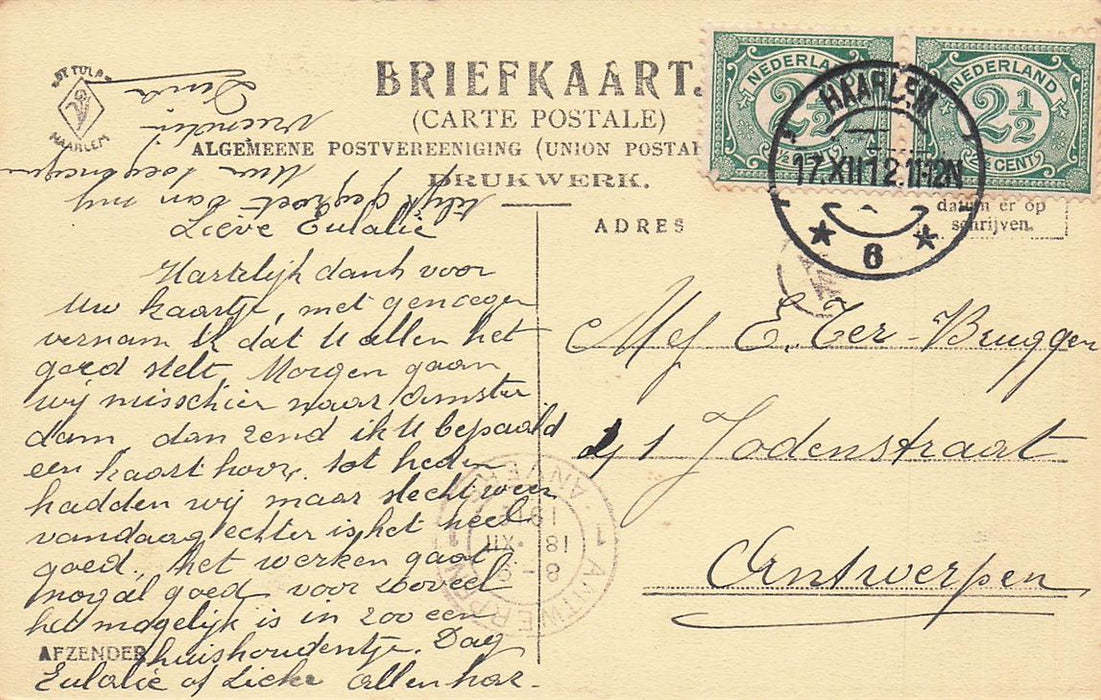 DE TULP
HAARLEM
BRIEFKAART.
(CARTE POSTALE)
ALGEMEENE POSTVEREENIGING (UNION POSTAL
DRUKWERK.
NEDERLAND
2½
CENT
NEDERLAND
2½
½ CENT
HAARLEM
17.XII 12.11-12N
6
datum er op
schrijven.
ADRES
Lieve Eulalie
Hartelijk dank voor
uw kaartje, met genoegen
vernam ik dat U allen het
goed stelt. Morgen gaan
wij misschien naar Amster
dam, dan zend ik U bepaald
een kaart hoor, tot heden
hadden wij maar slecht weer
vandaag echter is het heel
goed, het werken gaat
nogal goed, voor zooveel
het mogelijk is in zoo een
huishoudentje. Dag
Eulalie of allen har-
telijk gegroet van mij
Uw toegenegen
vriendin
AFZENDER
Mej E. Ter-Bruggen
1 Jodenstraat
Antwerpen
ANTWERPEN
1
8-9
18 XII
1912
ANVERS